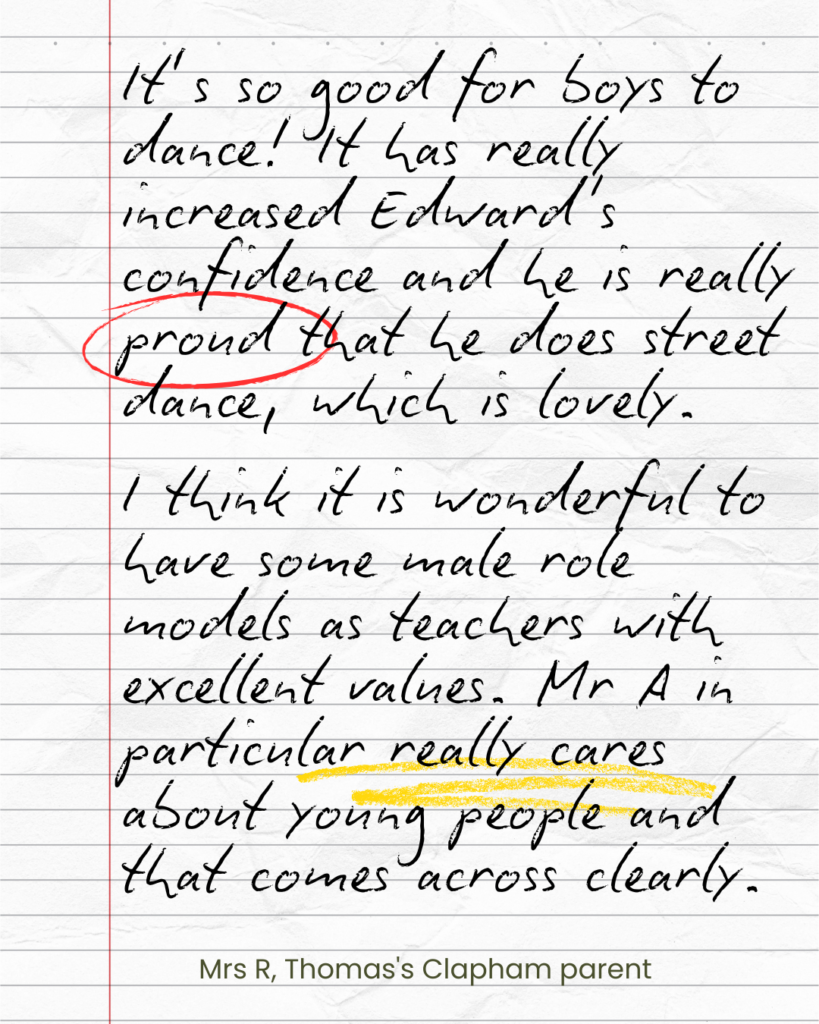 It's so good for boys to
dance! It has really
increased Edward's
confidence and he is really
proud that he does street
dance, which is lovely.
I think it is wonderful to
have some male role
models as teachers with
excellent values. Mr A in
particular really cares
about young people and
that comes across clearly.
Mrs R, Thomas's Clapham parent